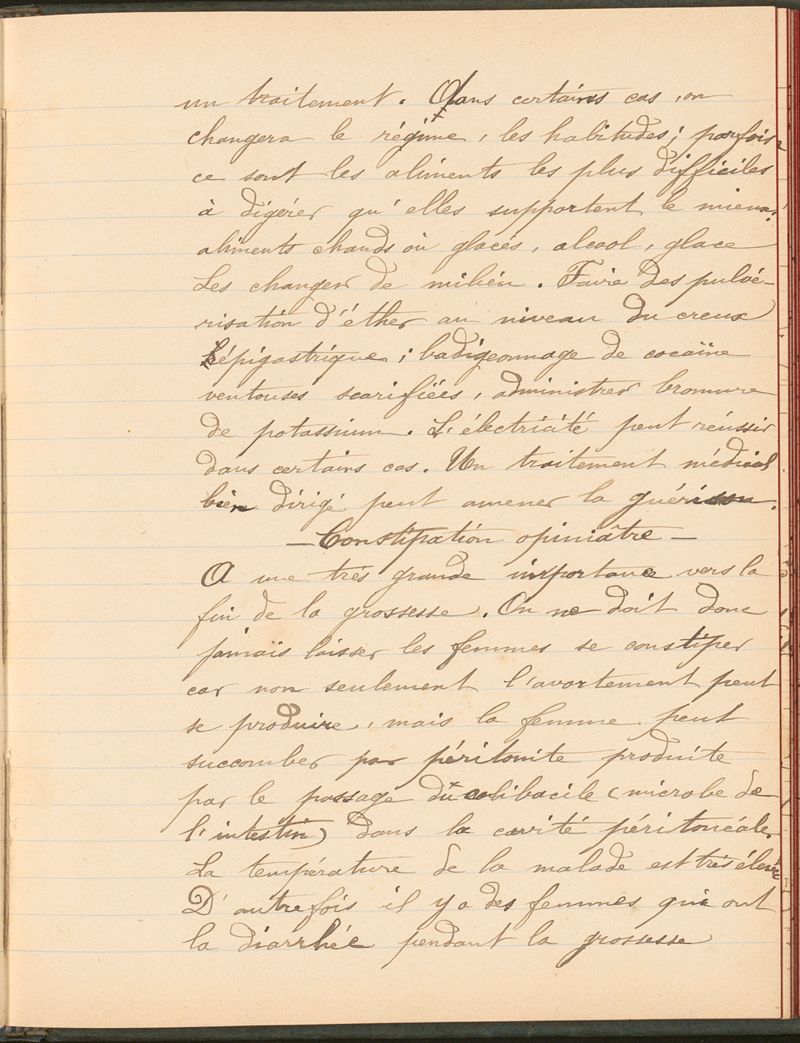 un traitement. Dans certains cas, on
changera le régime, les habitudes; parfois
ce sont les aliments les plus difficiles
à digérer qu'elles supportent le mieux:
aliments chauds ou glacés, alcool, glace
Les changer de milieu. Faire des pulvé-
risation d'éther au niveau du creux
épigastrique; badigeonnage de cocaïne
ventouses scarifiées, administrer bromure
de potassium. L'électricité peut réussir
dans certains cas. Un traitement médical
bien dirigé peut amener la guérison.
— Constipation opiniâtre —
A une très grande importance vers la
fin de la grossesse. On ne doit donc
jamais laisser les femmes se constiper
car non seulement l'avortement peut
se produire, mais la femme peut
succomber par péritonite produite
par le passage du colibacile (microbe de
l'intestin) dans la cavité péritonéale.
La température de la malade est très élevée
D'autrefois il y a des femmes qui ont
la diarrhée pendant la grossesse